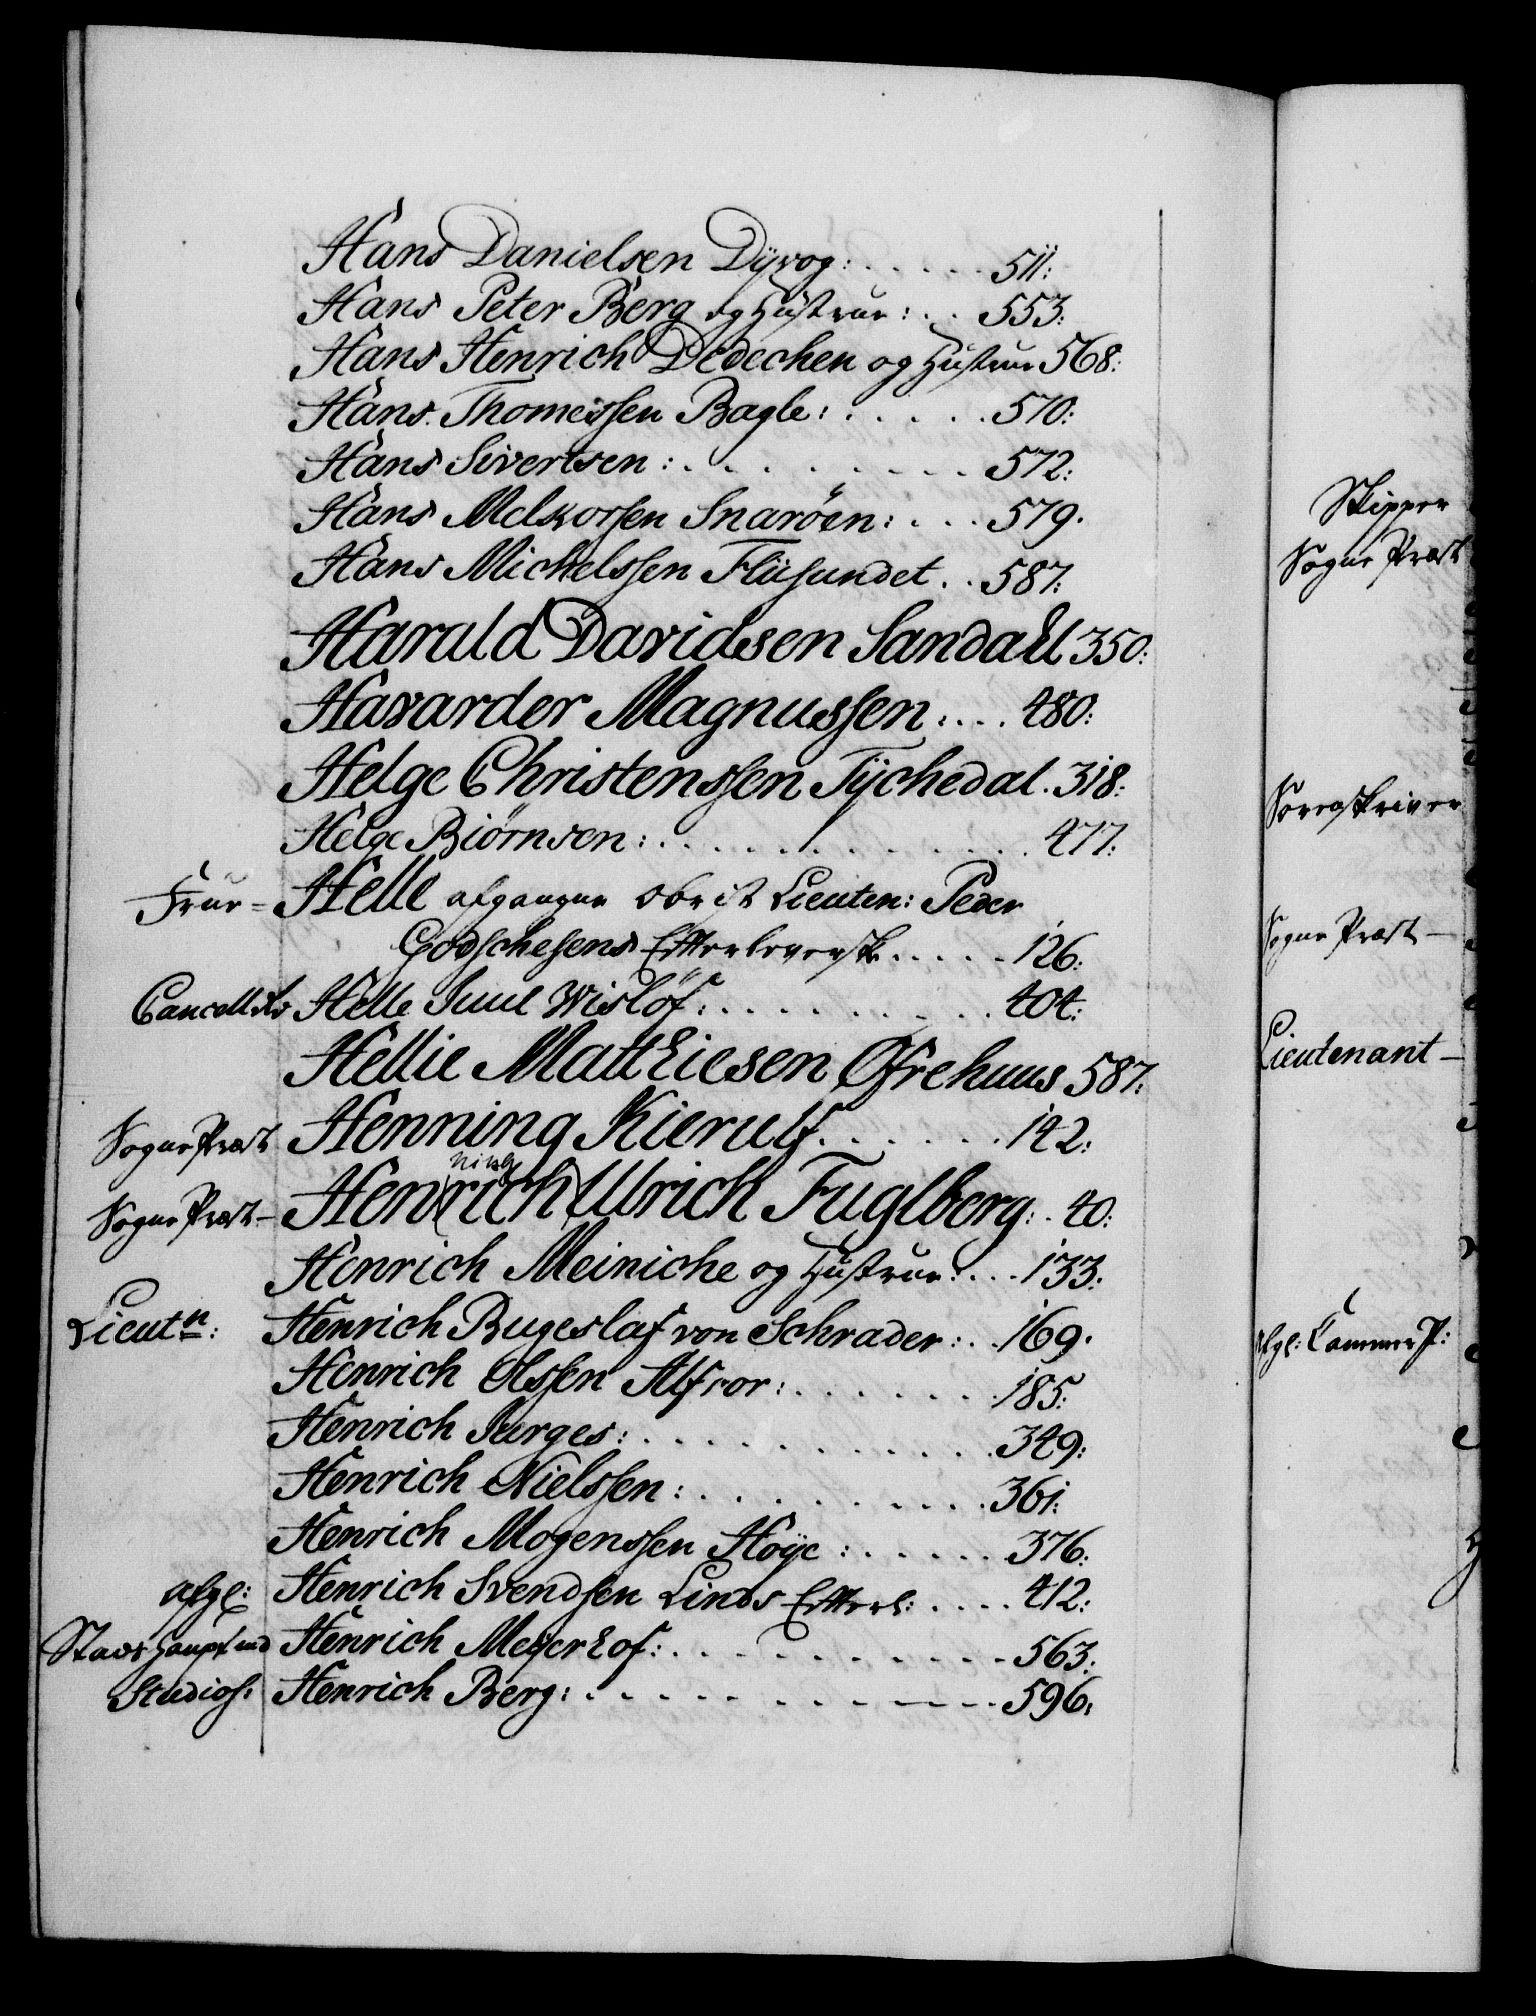 Hans Danielsen Dÿvog: . . . . . 511:
Hans Peter Berg og Hustrue: . . 553:
Hans Henrich Dedechen og Hustrue 568:
Hans Thomessen Bagle: . . . . . 570:
Hans Sivertsen: . . . . . . . . 572:
Hans Melkorsen Snaröen: . . . 579.
Hans Michelssen Flüsundet . . 587:
Harald Davidsen Sandahl 350:
Havarder Magnussen: . . . 480:
Helge Christenssen Tÿchedal . 318:
Helge Biörnsen: . . . . . . . . . . 477:
Frue - Helle afgangne Obrist Lieuten: Peder
Godschesens Efterleverske . . . . . 126:
Cancellird Helle Juul Wislöf: . . . . . . . . . 404:
Hellie Matthiesen Øfrehuus 587:
Sogne Præst Henning Kierulf . . . . . . 142:
ning
Sogne Præst - Henrich Ulrich Fuglberg: . 40:
Henrich Meiniche og Hustrue: . . . 133:
Lieutn: Henrich Bugeslaf von Schrader: . . 169.
Henrich Olssen Alfvor: . . . . . . . 185:
Henrich Jurges: . . . . . . . . . . . 349:
Henrich Nielssen: . . . . . . . . . . 361:
Henrich Mogenssen Höÿe: . . . . . . 376:
afgl: Henrich Svendsen Linds Efterl: . . . . 412:
Stads Hauptmd Henrich Meÿerhof: . . . . . . . . . . . 563:
Studios: Henrich Berg: . . . . . . . . . . . . 596:
Skipper
Sogne Præst
Sorenskriver
Sogne Præst -
Lieutenant -
afgl: Cammer J: